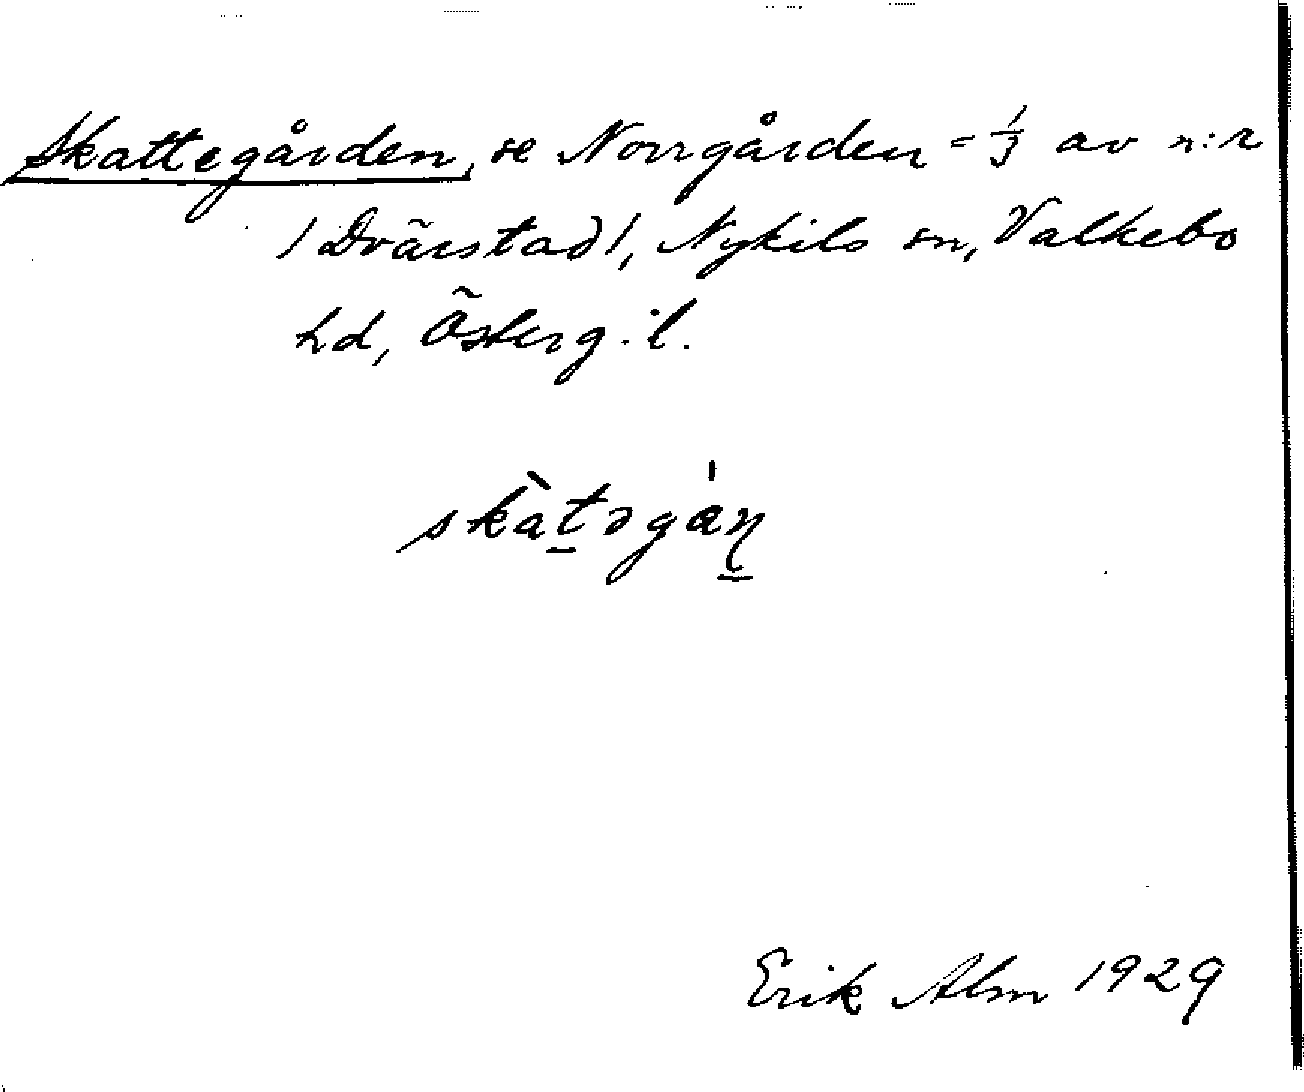 Skattegården, se Norrgården = 1/3 av n:r
1 Dvärstad 1, Nykils sn, Valkebo
hd, Österg. l.
skàt̠əgáṉ
Erik Alm 1929